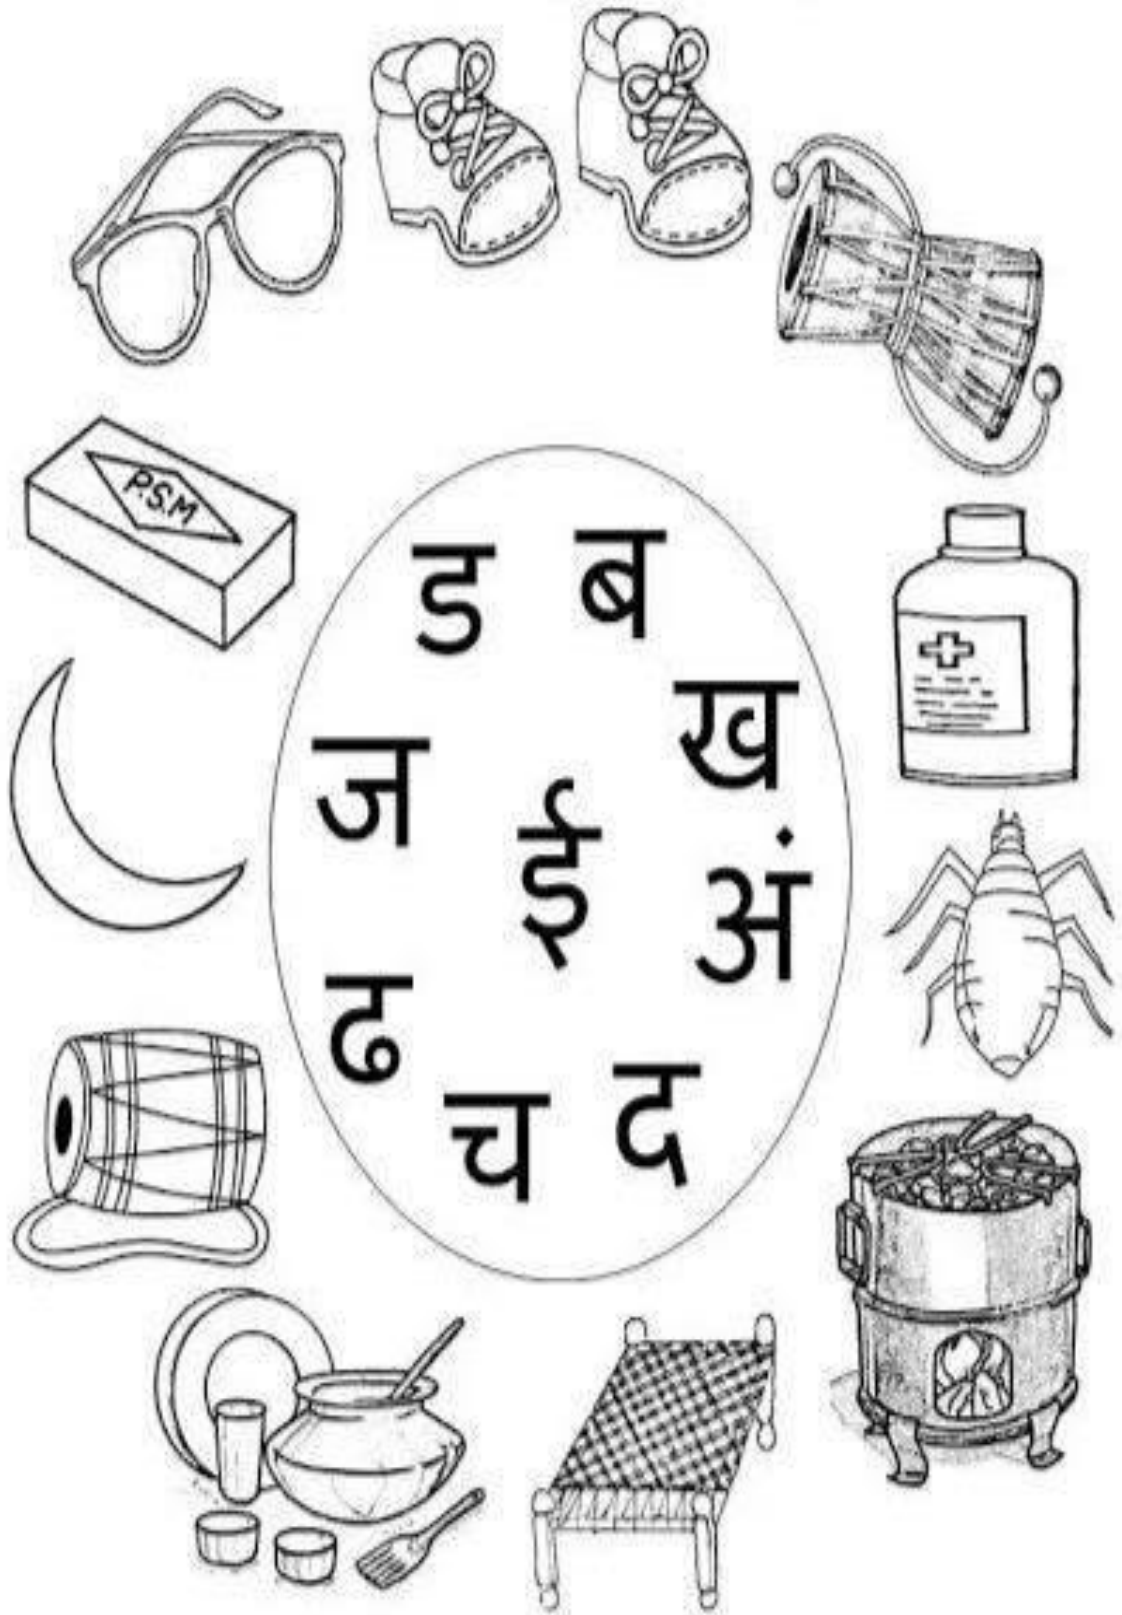 P.S.M
ड ब
ख
ज
ई
अं
ढ
च द